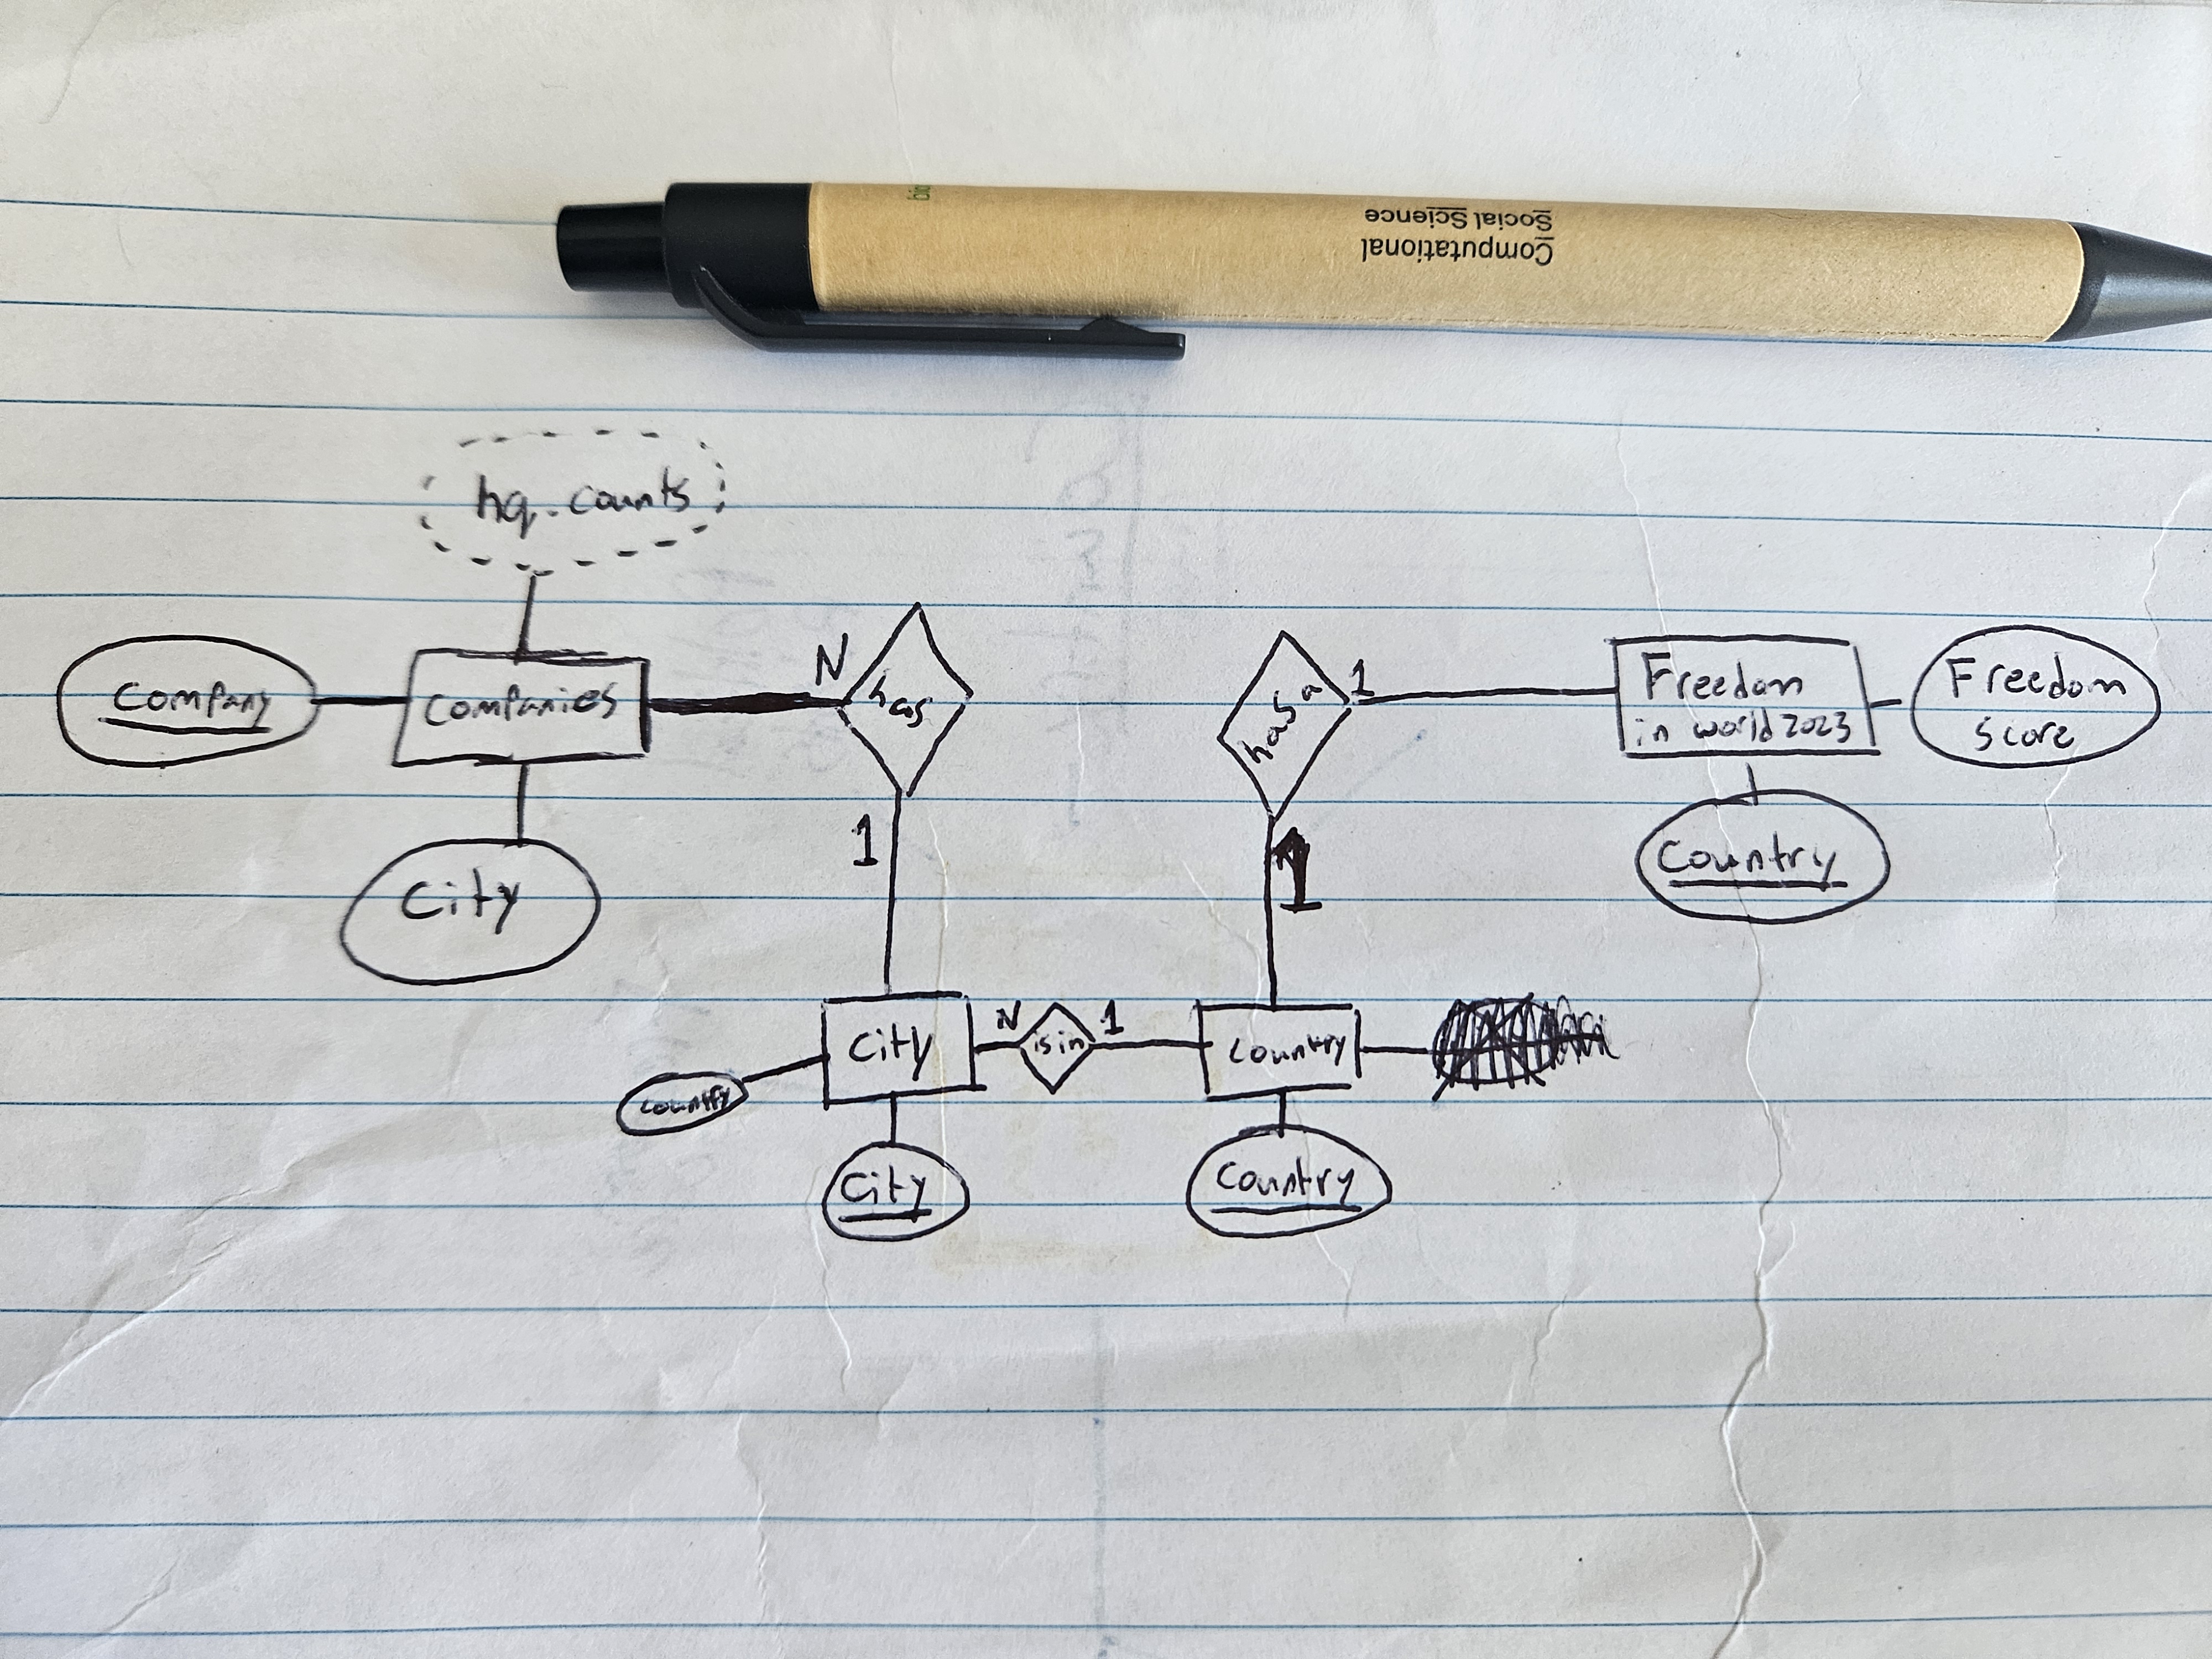 bio
Computational
Social Science
hq. counts
Company
Companies
N
has
has a
1
Freedom
in world 2023
Freedom
Score
City
1
1
Country
City
N
is in
1
Country
Country
City
Country